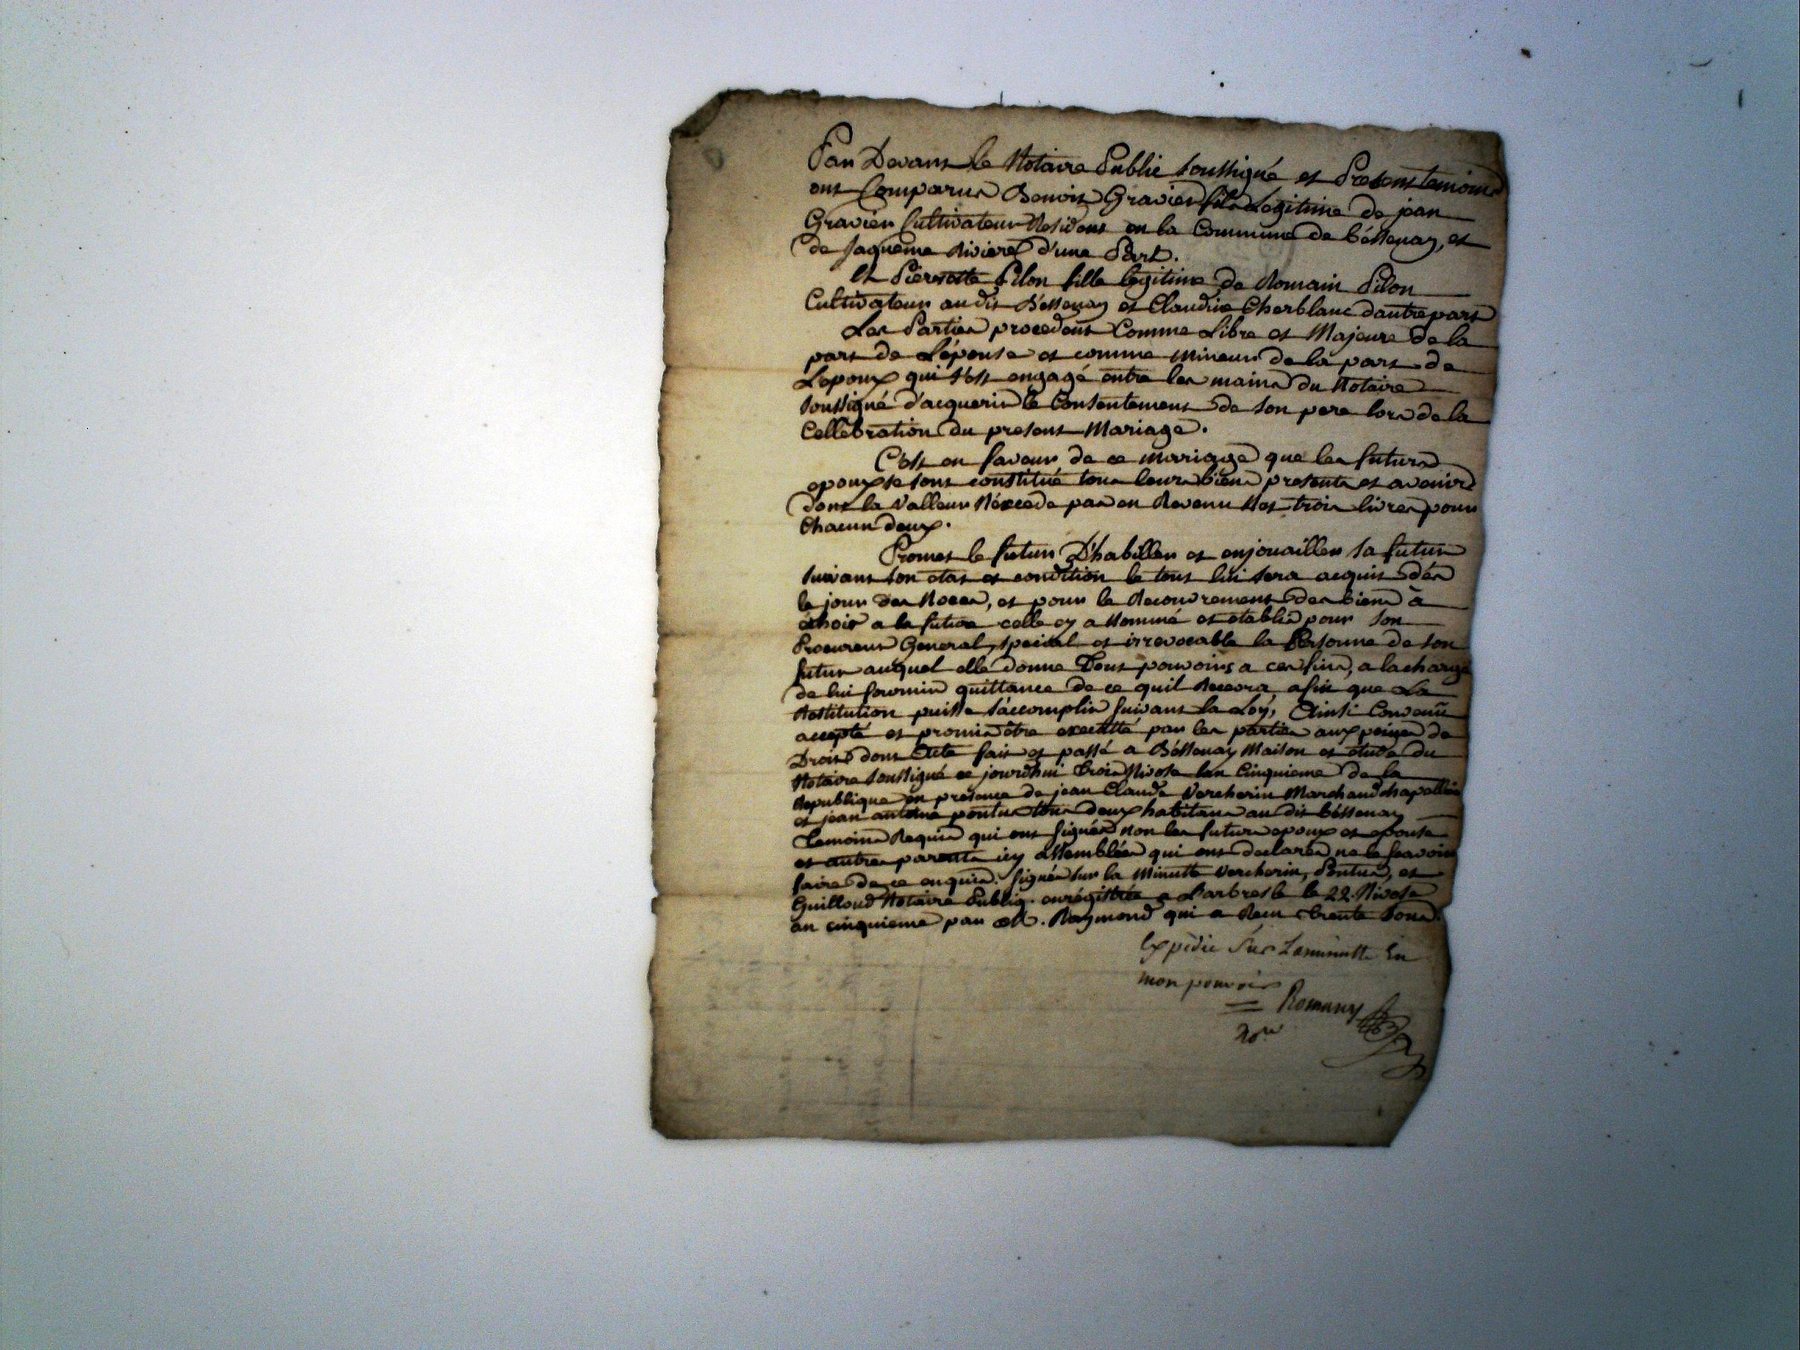 Par Devant le Notaire Public soussigné et Presents temoins
ont Comparus Benoit Gravier fils Legitime de jean
Gravier Cultivateur Resident en la Commune de béssenay, et
de jaqueme Riviere d'une Part.
Et Pierrette Pilon fille legitime de Romain Pilon
Cultivateur au dit Béssenay et Claudine Cherblanc d'autre part
Les Parties procedent Comme Libre et Majeure de la
part de L'épouse et comme mineur de la part de
Lepoux qui s'est engagé entre les mains du Notaire
soussigné d'acquerir le Consentement de son pere lors de la
Cellébration du present Mariage.
C'est en faveur de ce mariage que les futurs
epoux se sont constitué tous leurs biens presents et avenirs
dont la Valleur N'éxcede pas en Revenu Net trois livres pour
Chacun deux.
Promet le futur D'habiller et enjouailler sa future
suivant son etat et condition le tout lui sera acquis dés
le jour des Noces, et pour le Recouvrement des biens à
échoir a la future celle cy a Nommé et etablis pour son
Procureur General, special et irrevocable la Personne de son
futur auquel elle donne Tout pouvoirs a ces fins, a la charge
de lui fournir quittance de ce quil Recevra afin que La
Restitution puisse s'accomplir suivant la Loy, Ainsi Convenu
accepté et promis être executté par les parties aux peines de
Droit dont Acte fait et passé a Béssenay Maison et etude du
Notaire soussigné ce jourd'hui trois Nivose lan Cinquieme de la
Republique en presence de jean Claude Vercherin Marchand chapellier
et jean antoine pontus tous deux habitans au dit béssenay
temoins Requis qui ont signés non les futurs epoux et epouse
et autres parents icy assemblées qui ont declarés ne le scavoir
faire de ce enquis. signés sur la Minutte Vercherin, Pontus, et
Guilloud Notaire Public. enrégistrée a Larbresle le 22. Nivose
an cinquieme par Raymond qui a Recu trente sous.
Expedié Sur Laminutte En
mon pouvoir
Romany